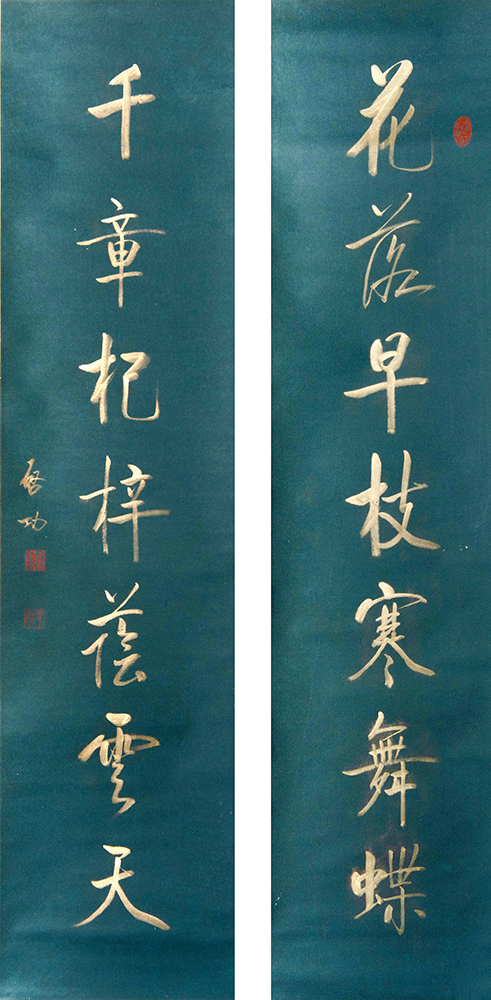 花落早枝寒舞蝶
千章杞梓蔭雲天
啓功